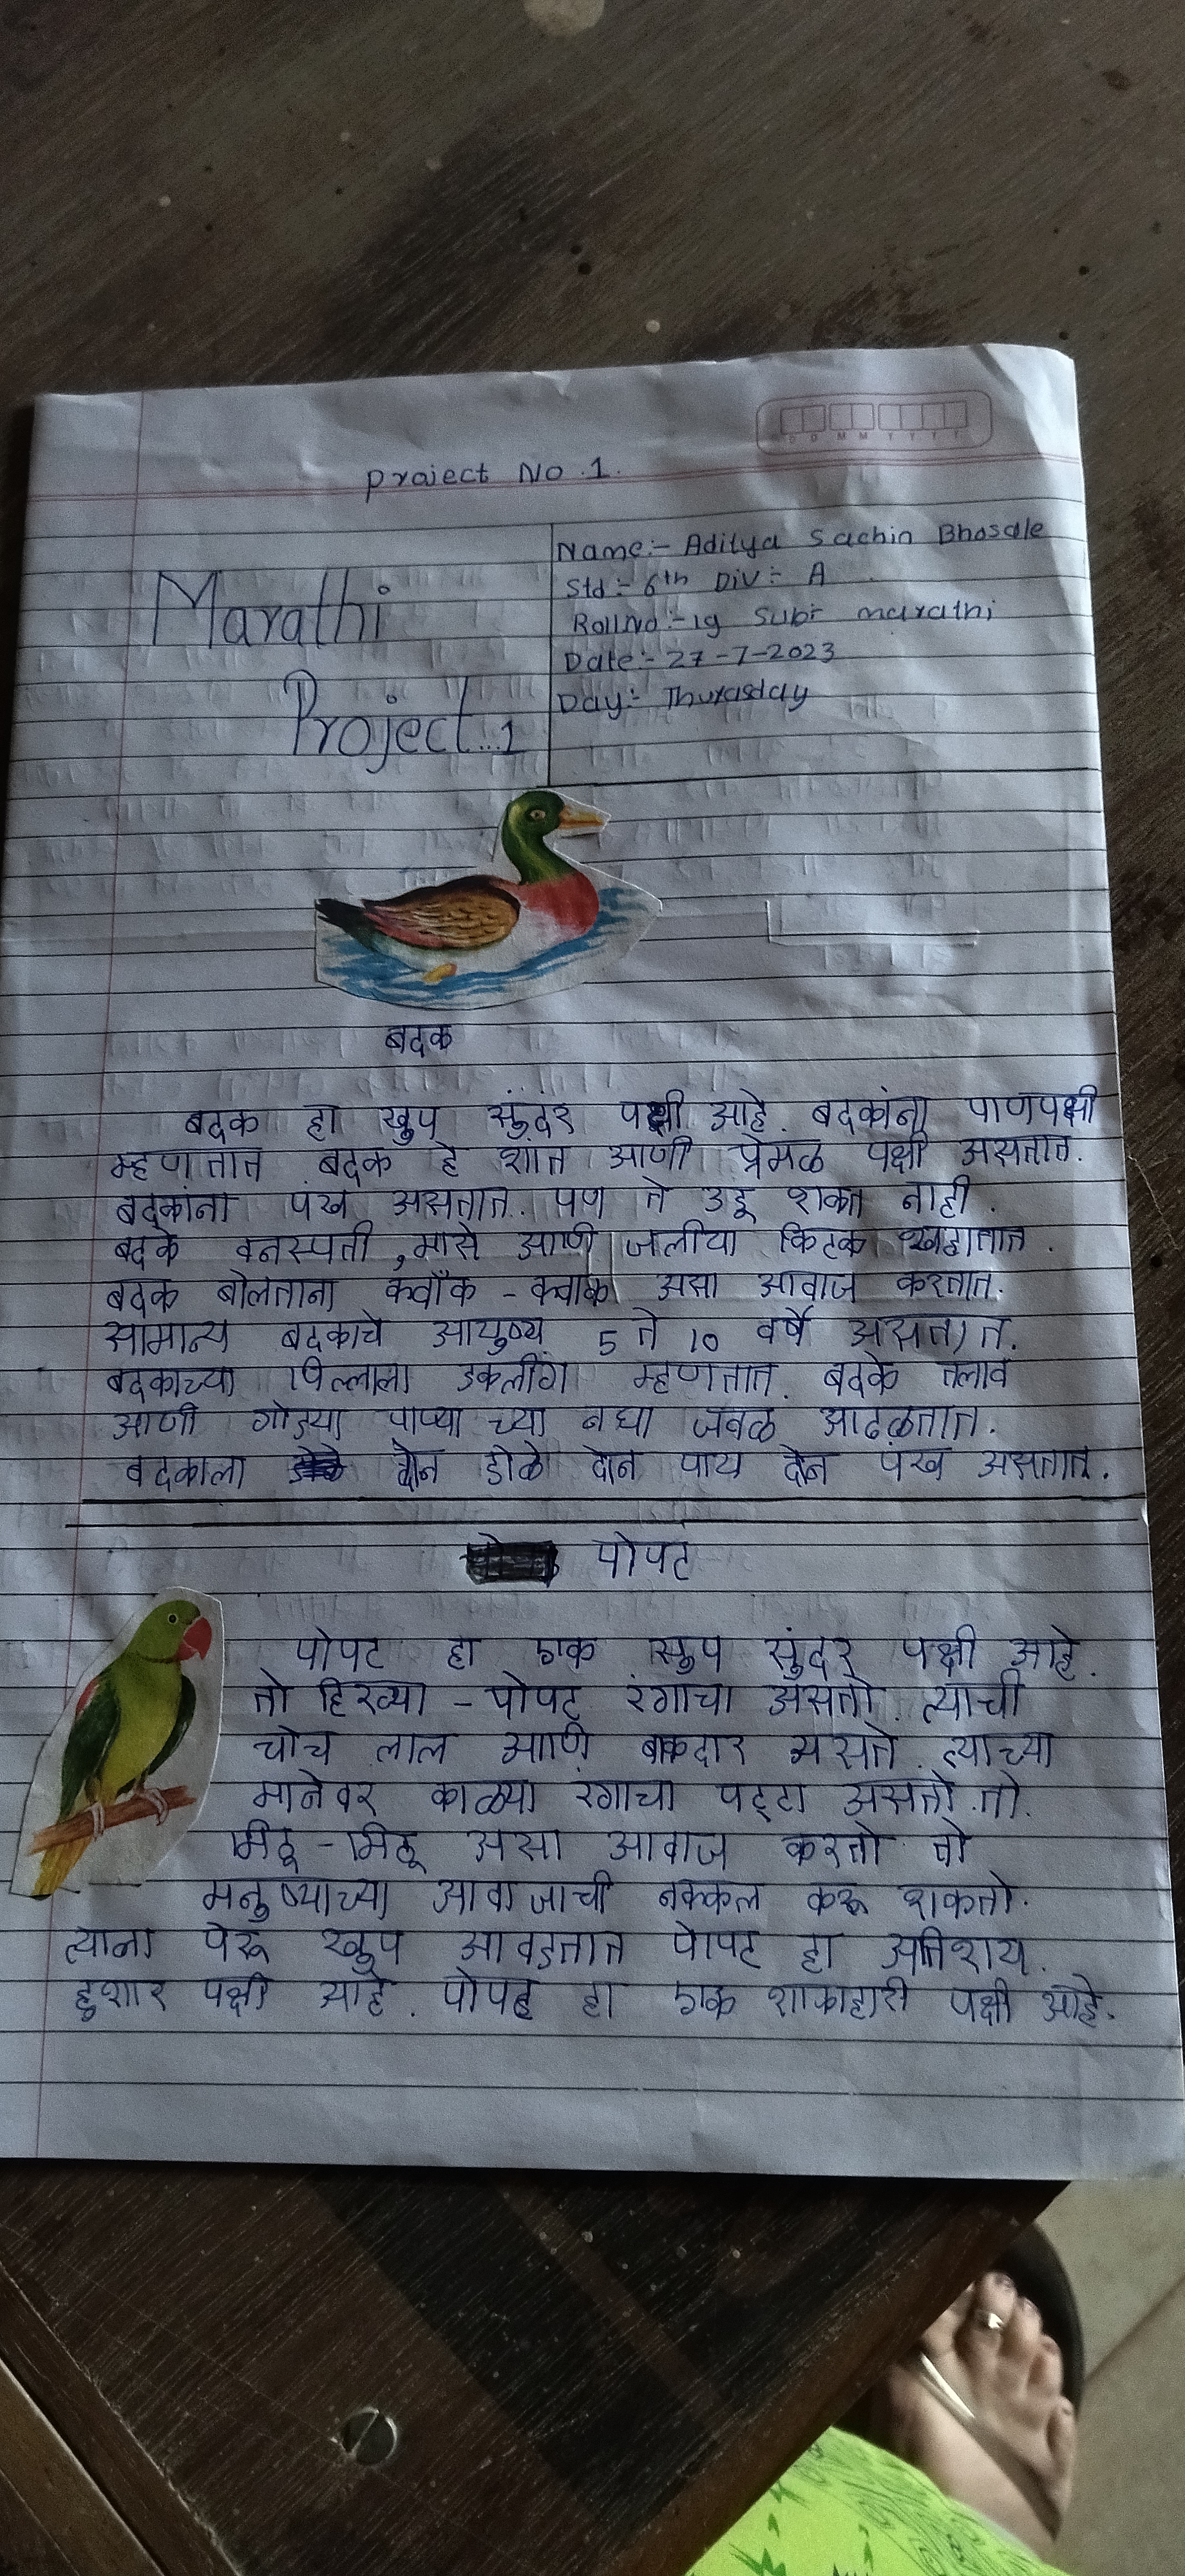 Project No. 1.
Marathi
Project..1
Name:- Aditya Sachin Bhosale
Std :- 6th Div :- A
Roll No :- 19 Sub:- marathi
Date:- 27-7-2023
Day:- Thurasday
D D M M Y Y Y Y
बदक
बदक हा खुप सुंदर पक्षी आहे. बदकांना पाणपक्षी
म्हणतात बदक हे शांत आणी प्रेमळ पक्षी असतात.
बदकांना पंख असतात. पण ते उडू शकत नाही.
बदके वनस्पती, मासे आणि जलीया किटक खातात.
बदक बोलताना क्वॉक - क्वाक असा आवाज करतात.
सामान्य बदकाचे आयुष्य 5 ते 10 वर्षे असतात.
बदकाच्या पिल्लाला डकलींग म्हणतात. बदके तलाव
आणी गोड्या पाण्या च्या नद्या जवळ आढळतात.
बदकाला दोन डोळे दोन पाय दोन पंख असतात.
पोपट
पोपट हा एक खुप सुंदर पक्षी आहे.
तो हिरव्या - पोपट रंगाचा असतो. त्याची
चोच लाल आणि बाकदार असते. त्याच्या
मानेवर काळ्या रंगाचा पट्टा असतो. तो.
मिठू - मिठू असा आवाज करतो तो
मनुष्याच्या आवाजाची नक्कल करू शकतो.
त्याना पेरू खुप आवडतात पोपट हा अतिशय.
हुशार पक्षी आहे. पोपट हा एक शाकाहारी पक्षी आहे.